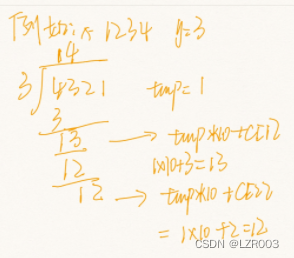 1234 y=3
14
3 4321 tmp=1
3
13 → tmp*10+C[1]
12 1x10+3=13
12 → tmp*10+C[2]
=1x10+2=12
CSDN @LZR003